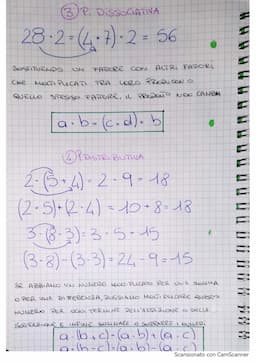 ③ P. DISSOCIATIVA
28 · 2 = (4 · 7) · 2 = 56
SOSTITUENDO UN FATTORE CON ALTRI FATTORI,
CHE MOLTIPLICATI TRA LORO PRODUCONO
QUELLO STESSO FATTORE, IL PRODOTTO NON CAMBIA
a · b = (c · d) · b
P. DISTRIBUTIVA
2 · (5 + 4) = 2 · 9 = 18
(2 · 5) + (2 · 4) = 10 + 8 = 18
3 · (8 - 3) = 3 · 5 = 15
(3 · 8) - (3 · 3) = 24 - 9 = 15
SE ABBIAMO UN NUMERO MOLTIPLICATO PER UNA SOMMA
O PER UNA DIFFERENZA, POSSIAMO MOLTIPLICARE QUESTO
NUMERO PER OGNI TERMINE DELL'ADDIZIONE O DELLA
SOTTRAZIONE E INFINE SOMMARE O SOTTRARRE I NUMERI
a · (b + c) = (a · b) + (a · c)
a · (b - c) = (a · b) - (a · c)
Scansionato con CamScanner